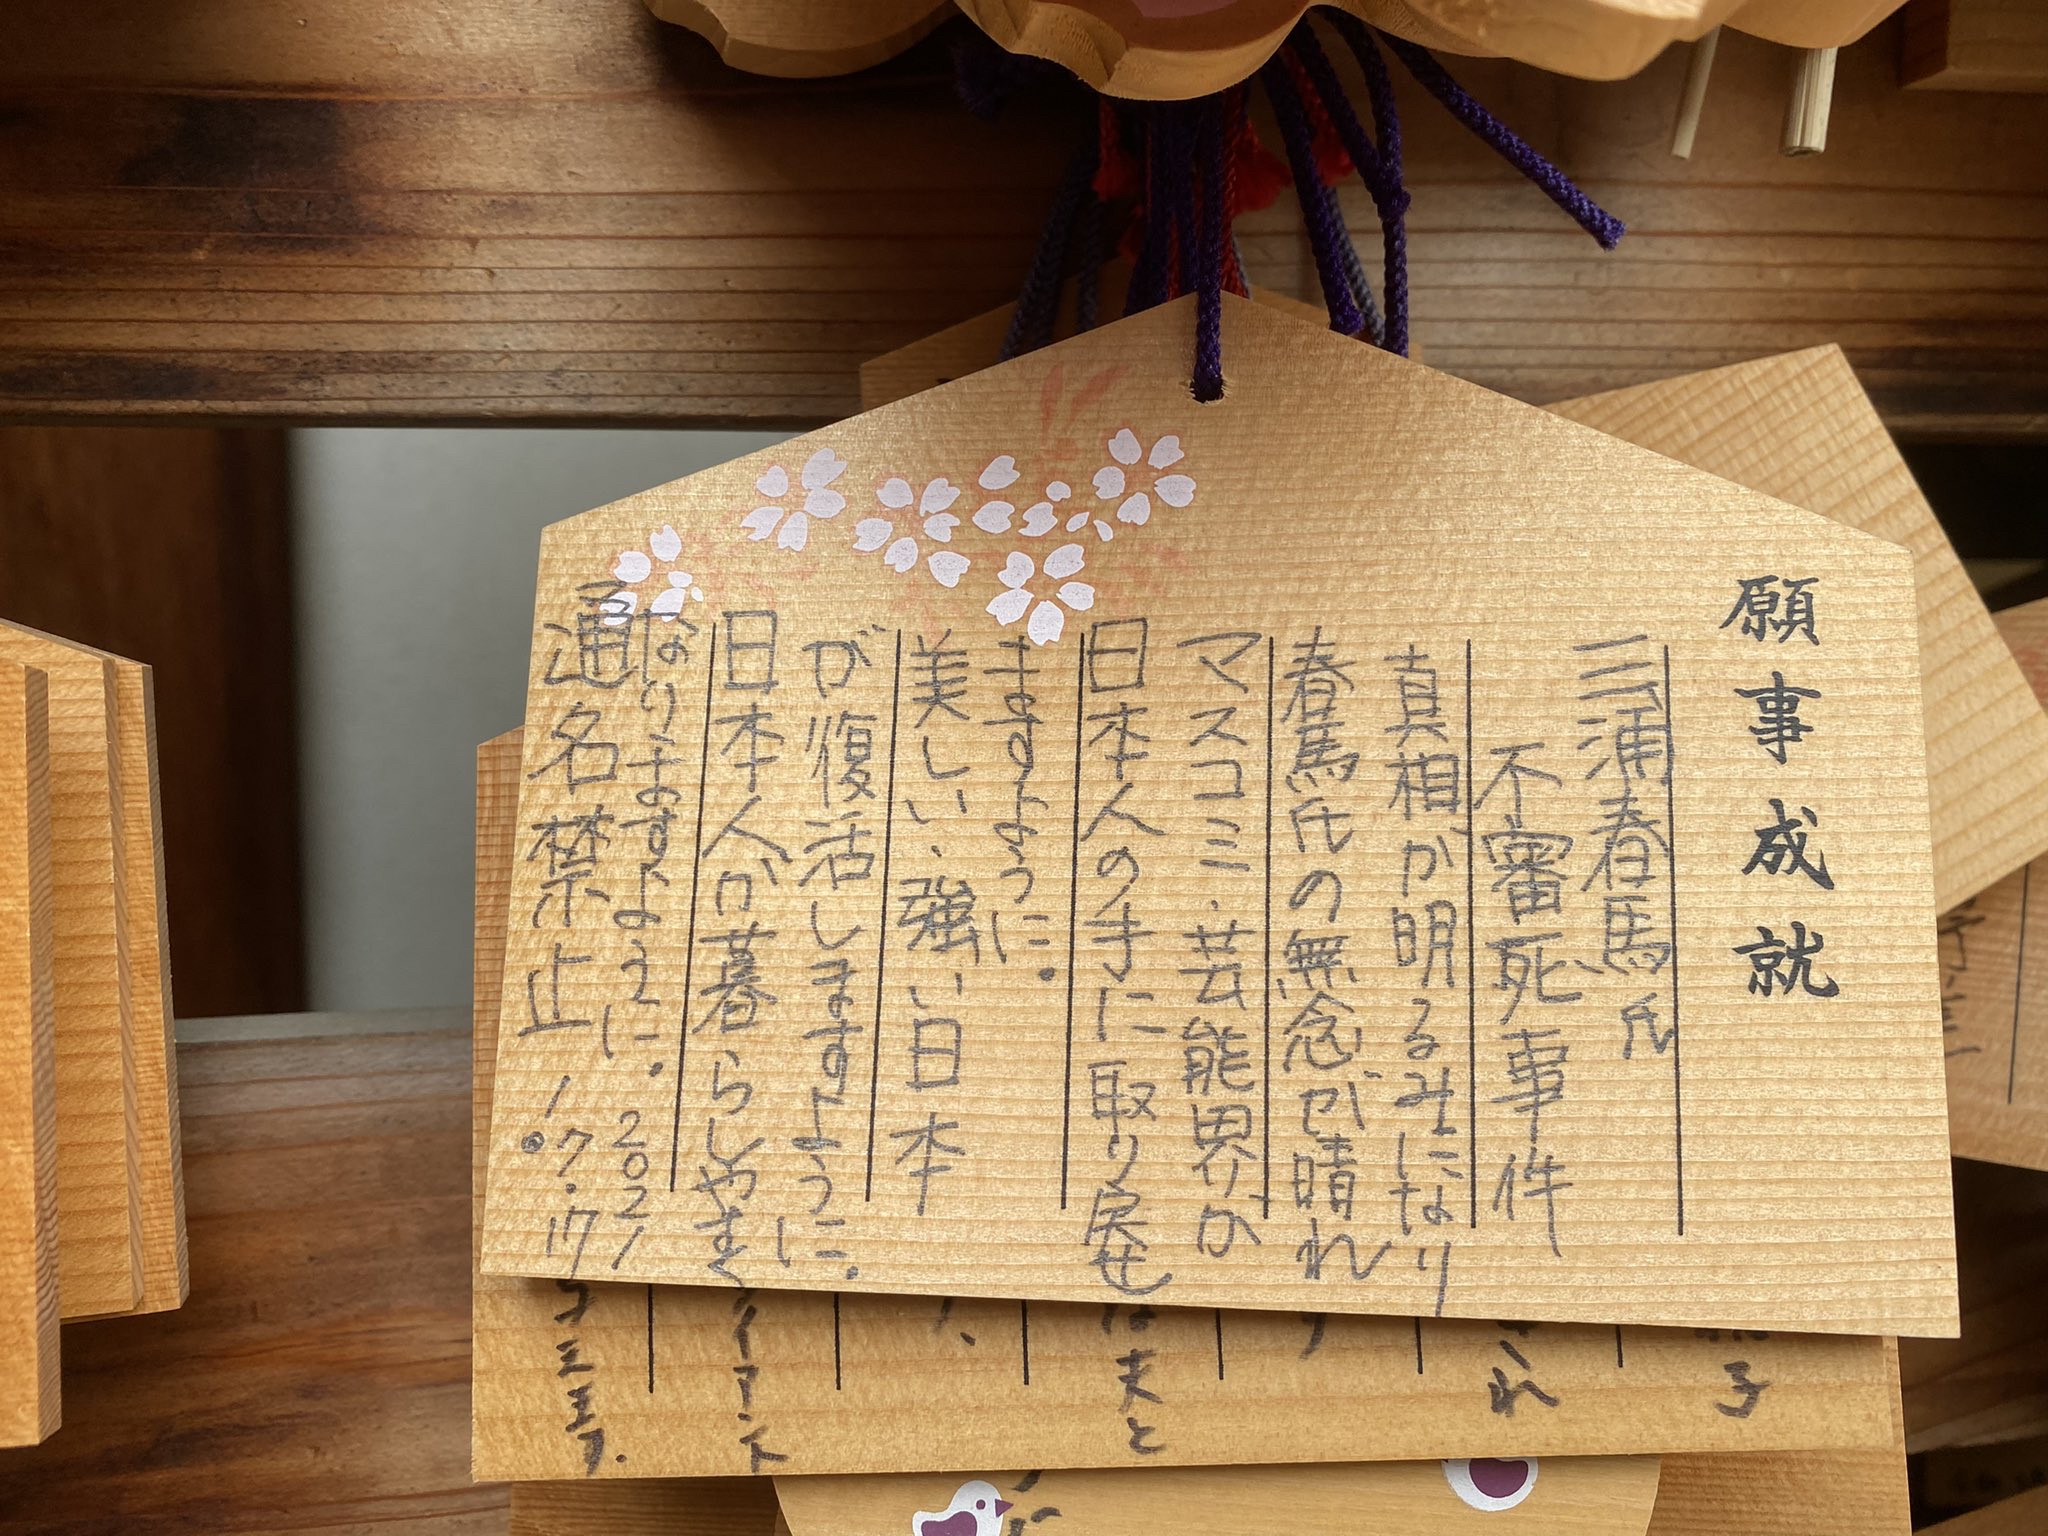 願事成就
三浦春馬氏
不審死事件
真相が明るみになり
春馬氏の無念が晴れ
マスコミ・芸能界が
日本人の手に取り戻せ
ますように。
美しい、強い日本
が復活しますように。
日本人が暮らしやすく
なりますように。2021
通名禁止!
7.17
子
され
は夫と